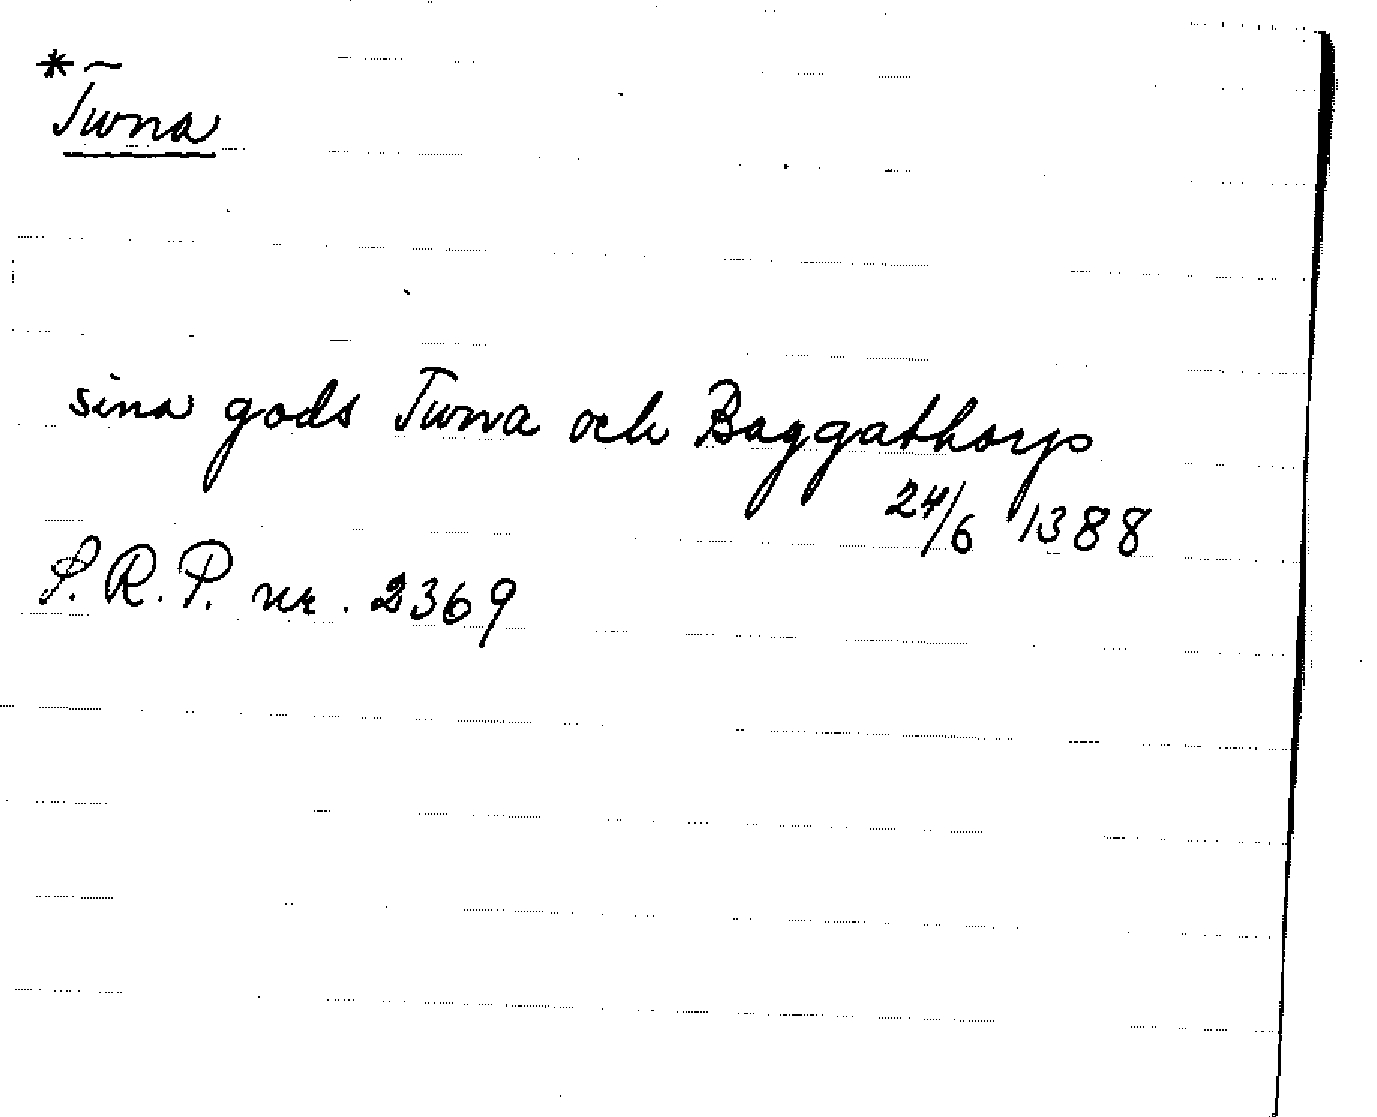 *~
Twna
sina gods Twna och Baggathorp
24/6 1388
S.R.P. nr. 2369